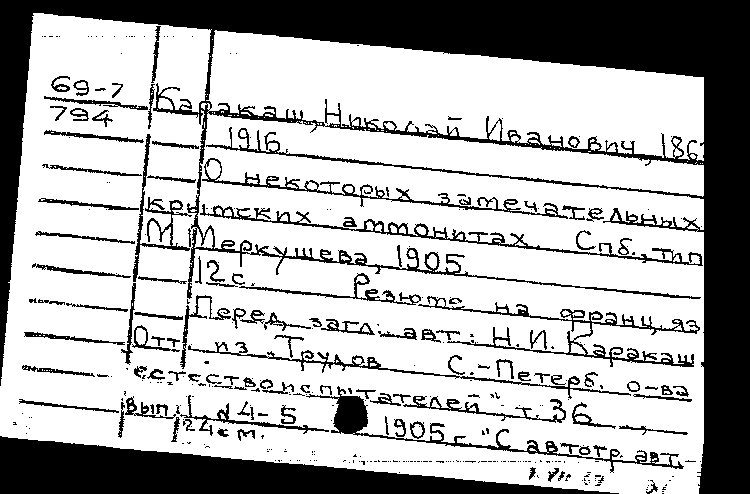 69-7
794
Каракаш, Николай Иванович, 186
1916.
О некоторых замечательных
крымских аммонитах. Спб., тип
М. Меркушева, 1905.
12 с. Резюме на франц. яз
Перед загл. авт.: Н. И. Каракаш.
Отт. из "Трудов С.-Петерб. о-ва
естествоиспытателей", т. 36
вып. 1, №4-5, 1905 г. "С автогр. авт.
24 см.